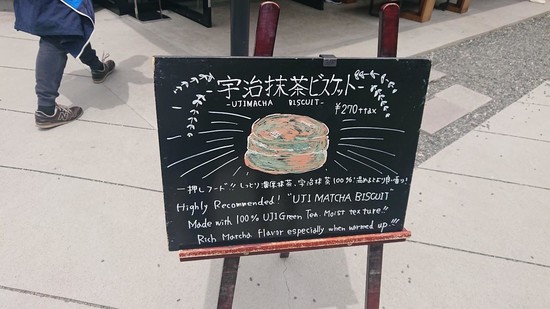 -宇治抹茶ビスケット-
-UJIMACHA BISCUIT-
¥270+tax
一押しフード!! しっとり濃厚抹茶、宇治抹茶100%! 温めるとより良い香り!
Highly Recommended! "UJI MATCHA BISCUIT
Made with 100% UJI Green Tea. Moist texture!!
Rich Matcha flavor especially when warmed up!!!